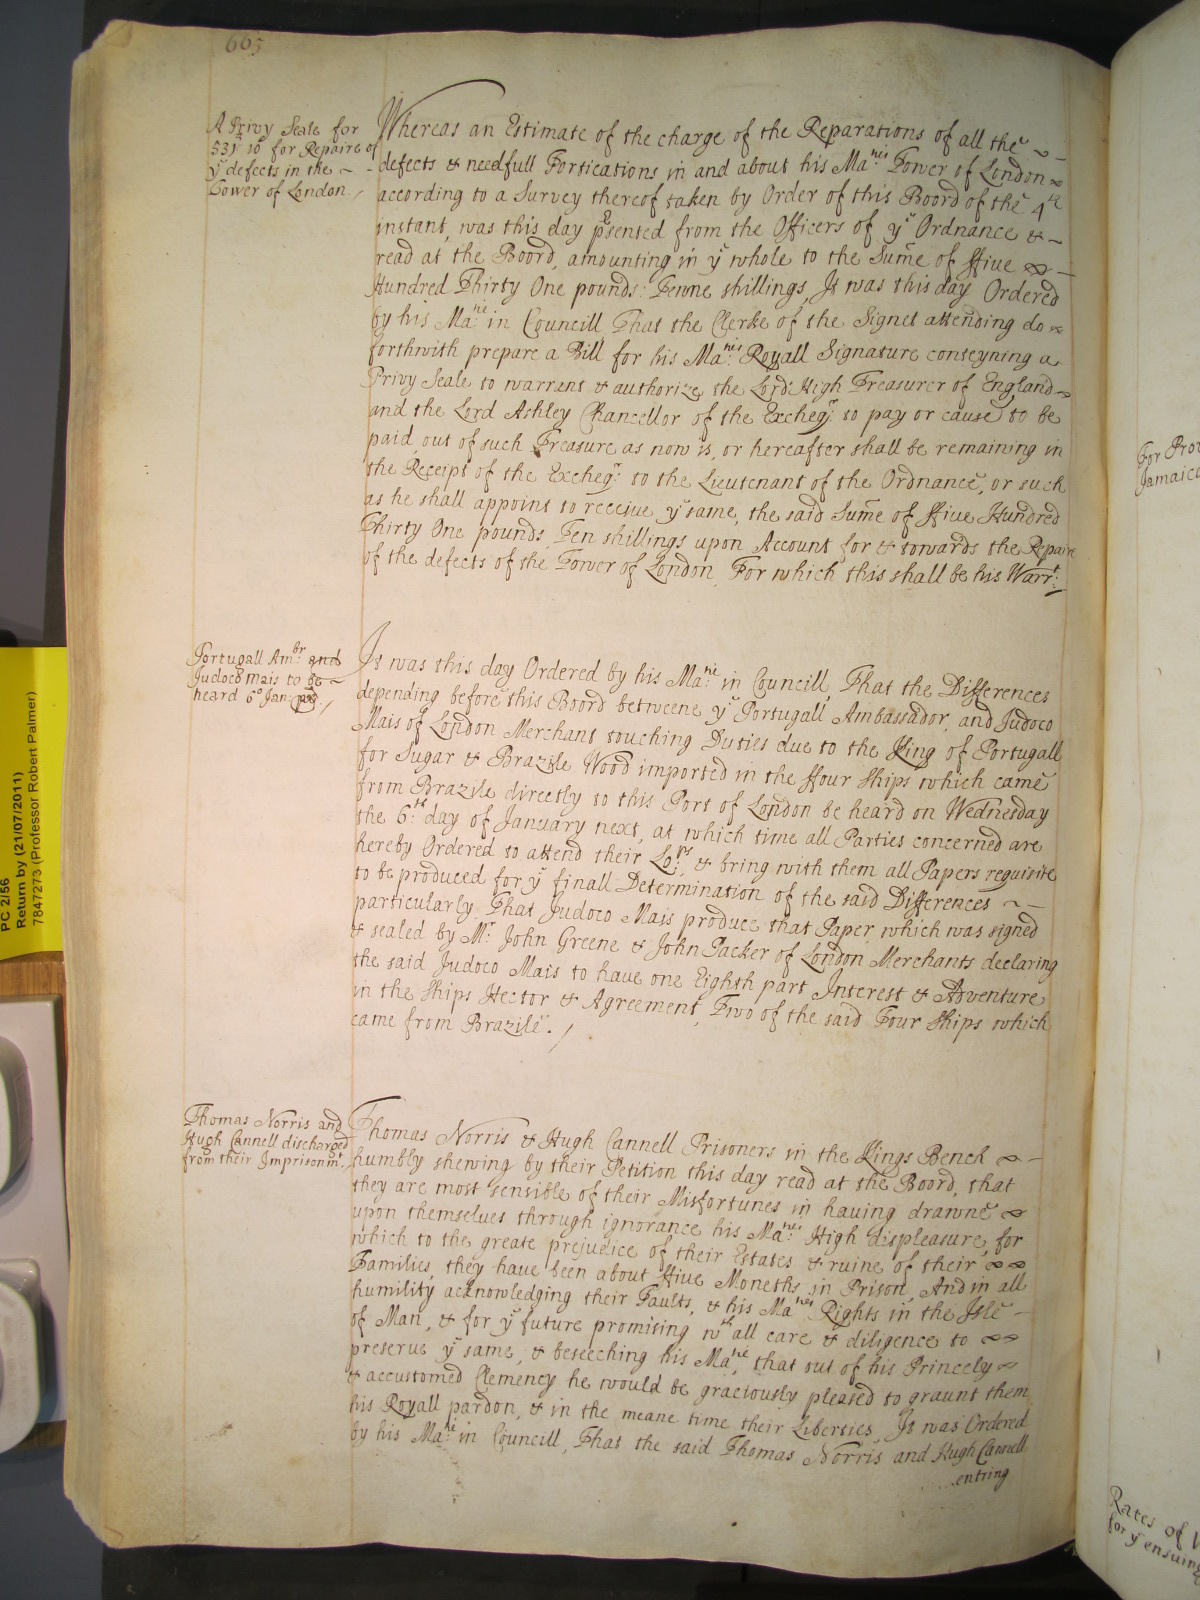 665
A Privy Seale for
531ˡ 10ˢ for Repaire of
yᵉ defects in the
Tower of London
Whereas an Estimate of the charge of the Reparations of all the
defects & needfull Fortications in and about his Maᵗⁱᵉˢ Tower of London
according to a Survey thereof taken by Order of this Board of the 4ᵗʰ
instant, was this day pʳsented from the Officers of yᵉ Ordnance &
read at the Board, amounting in yᵉ whole to the Sum̄e of ffive
Hundred Thirty One pounds Tenne shillings, It was this day Ordered
by his Maᵗⁱᵉ in Councill That the Clerke of the Signet attending do
forthwith prepare a Bill for his Maᵗⁱᵉˢ Royall Signature conteyning a
Privy Seale to warrant & authorize the Lord High Treasurer of England
and the Lord Ashley Chancellor of the Excheqʳ to pay or cause to be
paid out of such Treasure as now is, or hereafter shall be remaining in
the Receipt of the Excheqʳ to the Lieutenant of the Ordnance, or such
as he shall appoint to receive yᵉ same, the said Sum̄e of ffive Hundred
Thirty One pounds Ten shillings upon Account for & towards the Repaire
of the defects of the Tower of London, For which this shall be his Warrᵗ
Portugall Ambʳ and
Judoco Mais to be
heard 6º Jan:
It was this day Ordered by his Maᵗⁱᵉ in Councill, That the Differences
depending before this Board betweene yᵉ Portugall Ambassador, and Judoco
Mais of London Merchant touching Duties due to the King of Portugall
for Sugar & Brazile Wood imported in the ffour Ships which came
from Brazile directly to this Port of London be heard on Wednesday
the 6ᵗʰ day of January next, at which time all Parties concerned are
hereby Ordered to attend their Loᵖᵖˢ, & bring with them all Papers requisite
to be produced for yᵉ finall Determination of the said Differences
particularly That Judoco Mais produce that Paper which was signed
& sealed by Mʳ John Greene & John Packer of London Merchants declaring
the said Judoco Mais to have one Eighth part Interest & Adventure
in the Ships Hector & Agreement, Two of the said Four Ships which
came from Brazile.
Thomas Norris and
Hugh Cannell discharged
from their Imprisonmᵗ
Thomas Norris & Hugh Cannell Prisoners in the Kings Bench
humbly shewing by their Petition this day read at the Board, that
they are most sensible of their Misfortunes in having drawne
upon themselves through ignorance his Maᵗⁱᵉˢ High displeasure, for
which to the greate prejudice of their Estates & ruine of their
Families, they have been about ffive Moneths in Prison, And in all
humility acknowledging their Faults, & his Maᵗⁱᵉˢ Rights in the Isle
of Man, & for yᵉ future promising wᵗʰ all care & diligence to
preserve yᵉ same, & beseeching his Maᵗⁱᵉ, that out of his Princely
& accustomed Clemency he would be graciously pleased to graunt them
his Royall pardon, & in the meane time their Liberties, It was Ordered
by his Maᵗⁱᵉ in Councill, That the said Thomas Norris and Hugh Cannell
entring
PC 2/56
Return by (21/07/2011)
7847273 (Professor Robert Palmer)
For
Jamaica
Rates of
for yᵉ ensuing